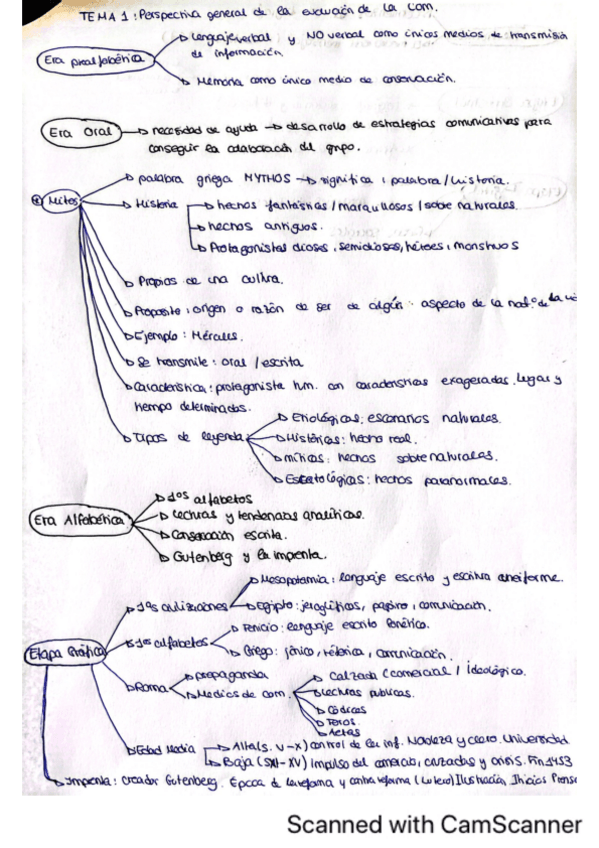 TEMA 1: Perspectiva general de la evolución de la com.
Era prealfabética
Lenguaje verbal y NO verbal como únicos medios de transmisión
de información.
Memoria como único medio de conservación.
Era Oral → necesidad de ayuda → desarrollo de estrategias comunicativas para
conseguir la colaboración del grupo.
Mitos
palabra griega MYTHOS → significa: palabra/historia.
Historia
hechos fantásticos/maravillosos/sobrenaturales.
hechos antiguos.
Protagonistas dioses, semidioses, héroes, monstruos
Propias de una cultura.
Proposito: origen o razón de ser de algún aspecto de la nat. o de la
Ejemplo: Hércules.
Se transmite: oral/escrita
Característica: protagonista hum. con características exageradas. Lugar y
tiempo determinados.
Tipos de leyenda
Etiológicas: escenarios naturales.
Históricas: hecho real.
míticas: hechos sobrenaturales.
Escatológicas: hechos paranormales.
Era Alfabética
1os alfabetos
Lecturas y tendencias analíticas.
Conservación escrita.
Gutenberg y la imprenta.
Etapa Gráfica
1as civilizaciones
Mesopotamia: lenguaje escrito y escritura cuneiforme.
Egipto: jeroglíficos, papiro, comunicación.
1os alfabetos
Fenicio: lenguaje escrito fonético.
Griego: jónico, retórica, comunicación.
Roma
propaganda
Medios de com.
Calzada (comercial / ideológico.
Lecturas públicas.
Códices
Foros
Actas
Edad Media
Alta (s. V-X) control de la inf. Nobleza y clero. Universidad
Baja (SXI-XV) impulso del comercio, cruzadas y crisis. Fin 1453
Imprenta: creador Gutenberg. Época de la reforma y contrarreforma (Lutero) Ilustración, Inicios Prensa
Scanned with CamScanner